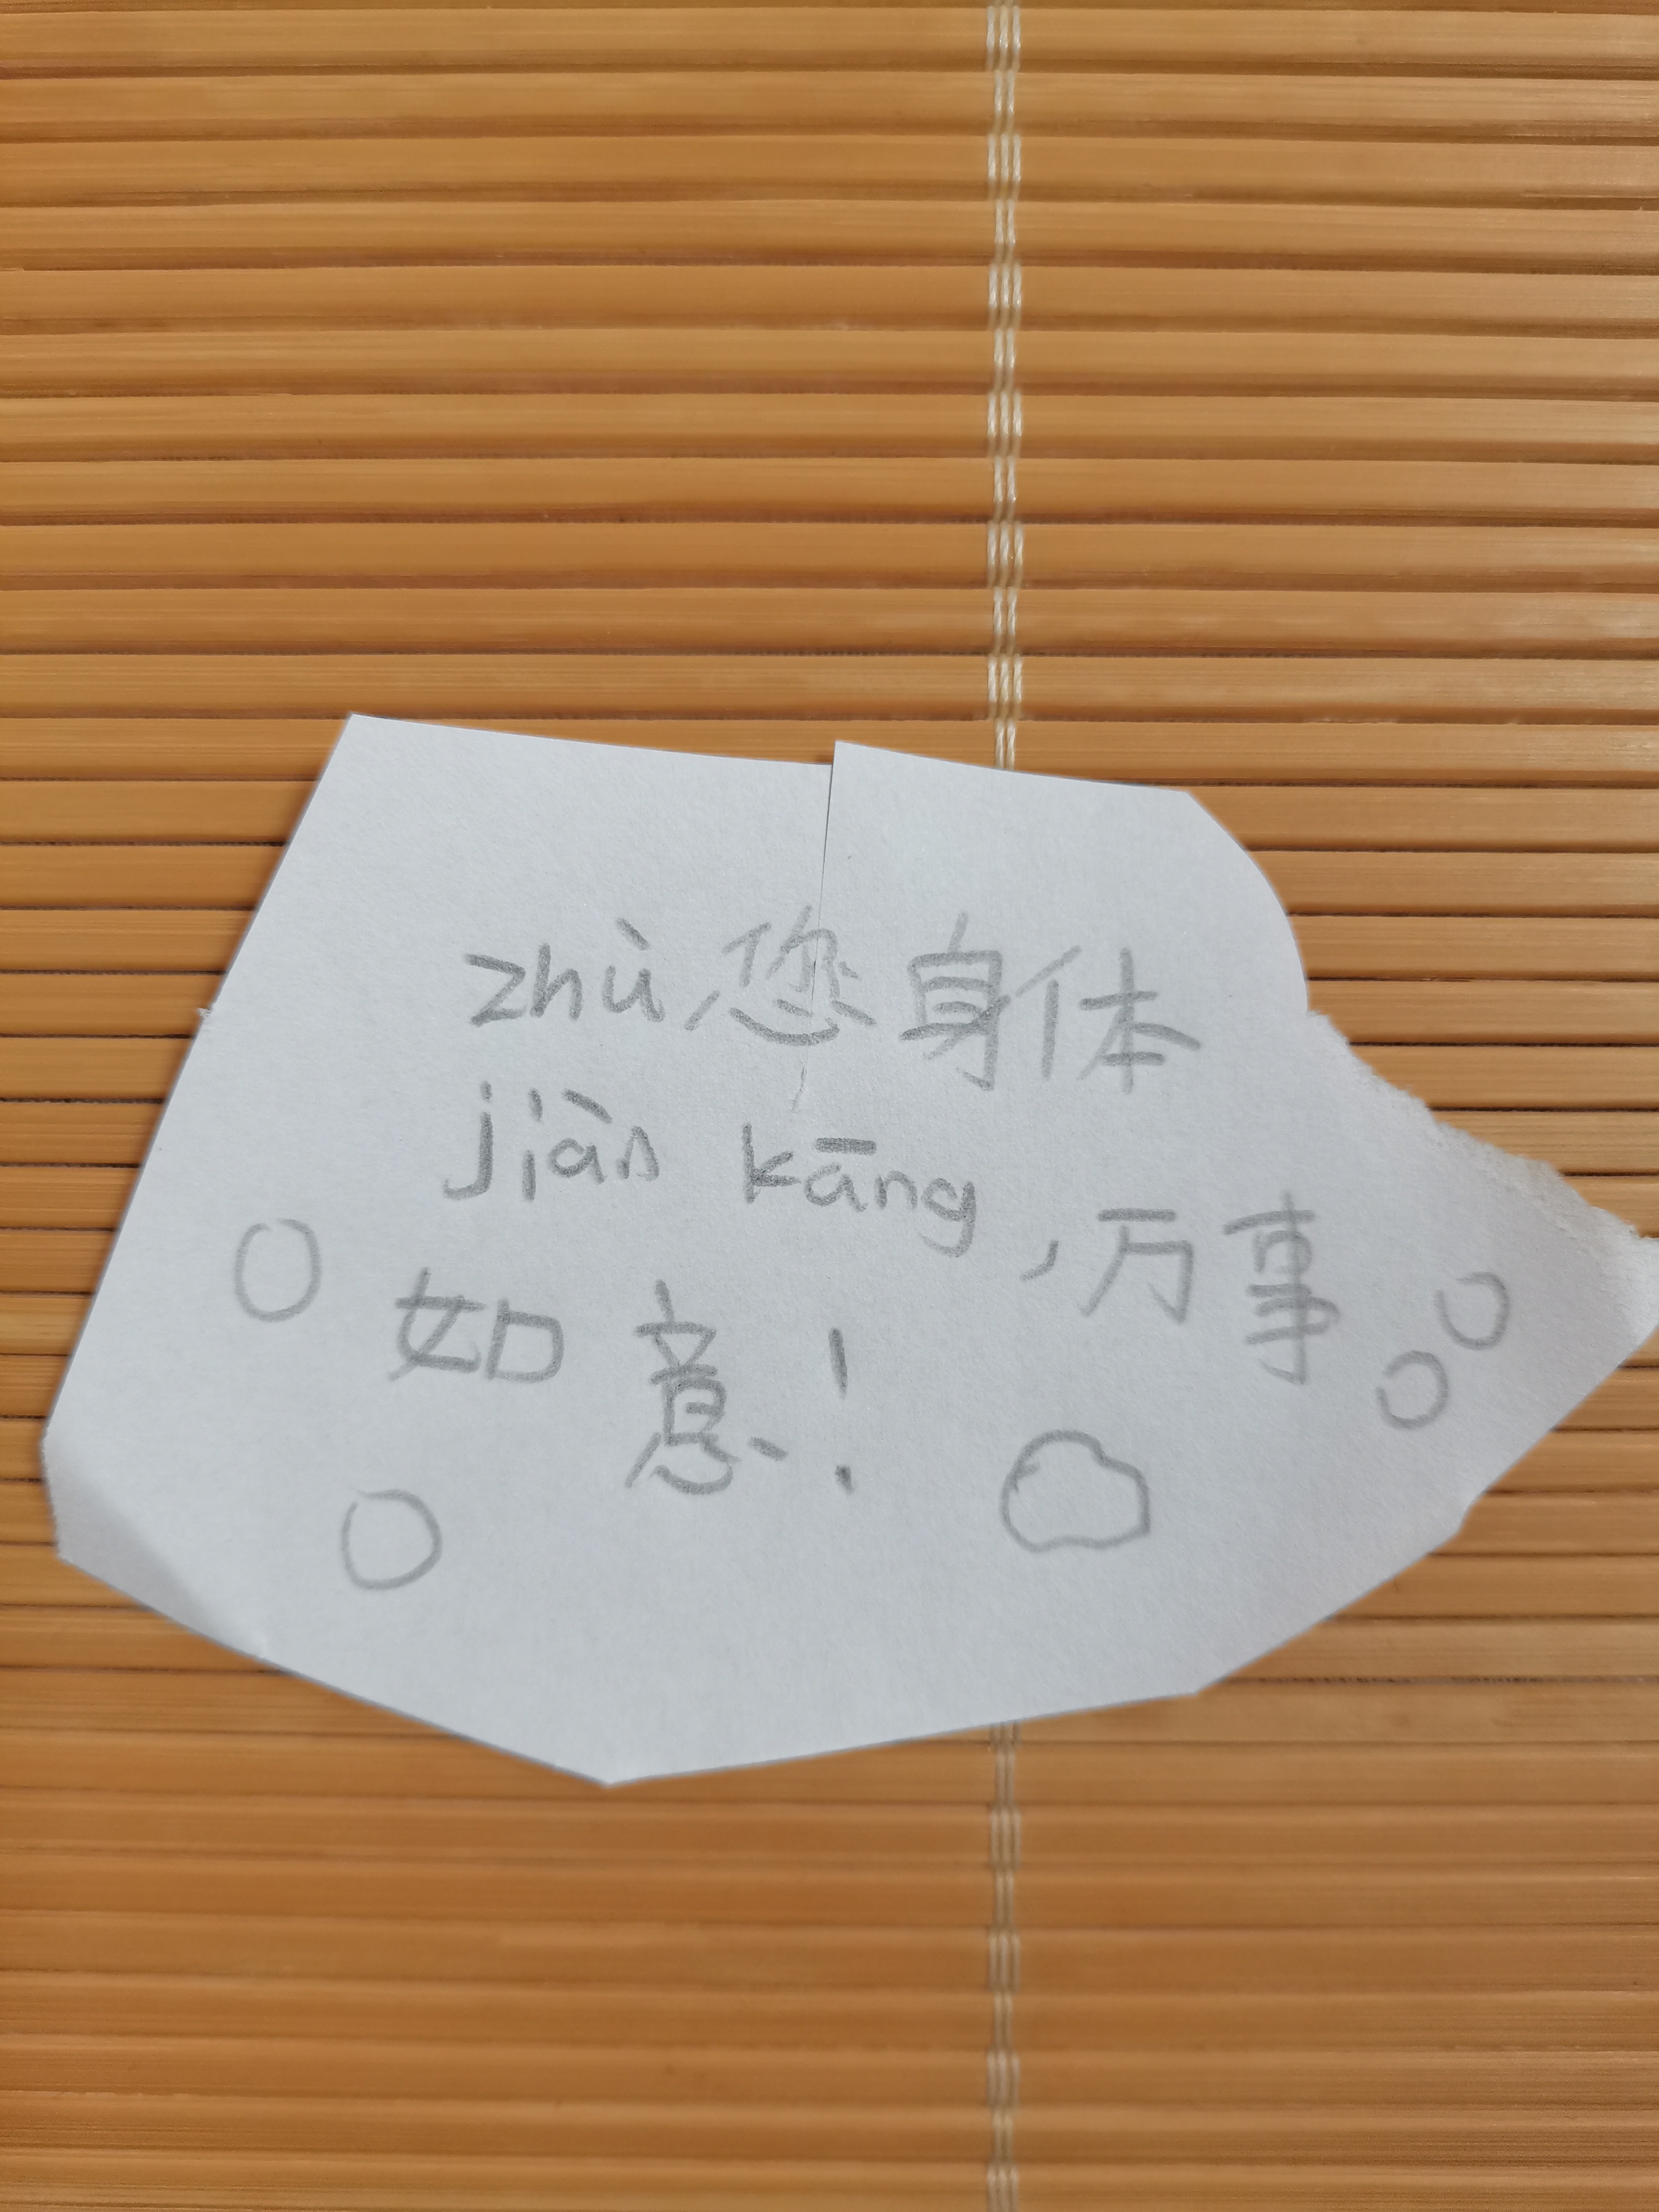 zhù您身体
jiàn kāng,万事
如意!